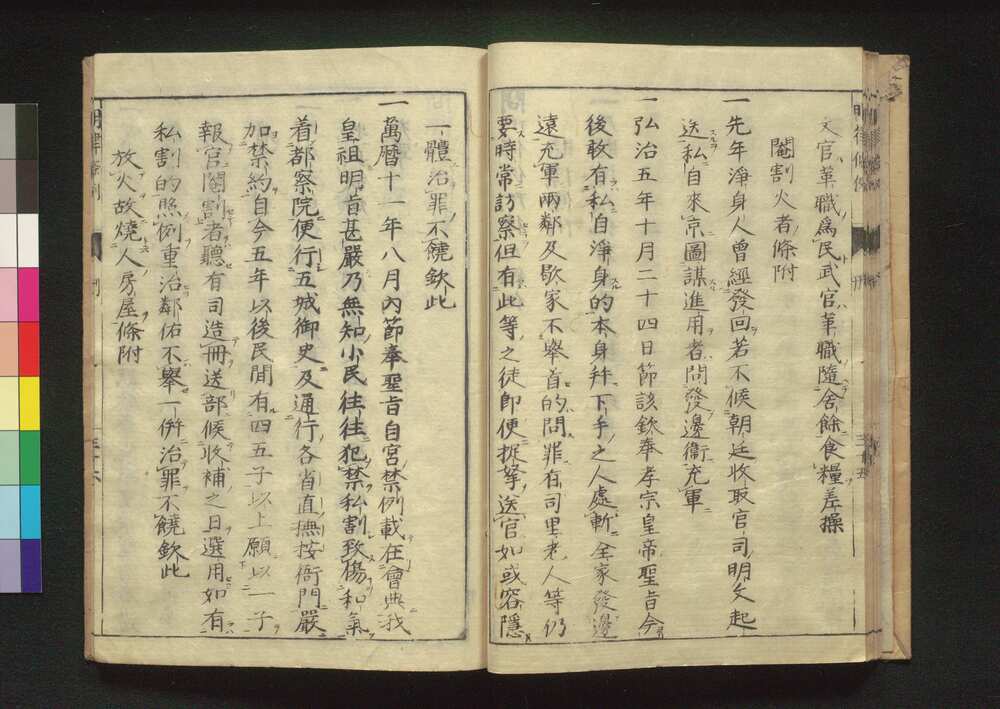 文官革職為民武官革職隨舍餘食糧差操
閹割火者條附
一先年淨身人曾經發回若不候朝廷收取官司明文起
送私自來京圖謀進用者問發邊衛充軍
一弘治五年十月二十四日節該欽奉孝宗皇帝聖旨今
後敢有私自淨身的本身幷下手之人處斬全家發邊
遠充軍兩鄰及歇家不舉首的問罪有司里老人等仍
要時常訪察但有此等之徒卽便捉拏送官如或容隱
一體治罪不饒欽此
一萬曆十一年八月內節奉聖旨自宮禁例載在會典我
皇祖明旨甚嚴乃無知小民往往犯禁私割致傷和氣
着都察院便行五城御史及通行各省直撫按衙門嚴
加禁約自今五年以後民間有四五子以上願以一子
報官閹割者聽有司造冊送部候收補之日選用如有
私割的照例重治鄰佑不舉一倂治罪不饒欽此
放火故燒人房屋條附